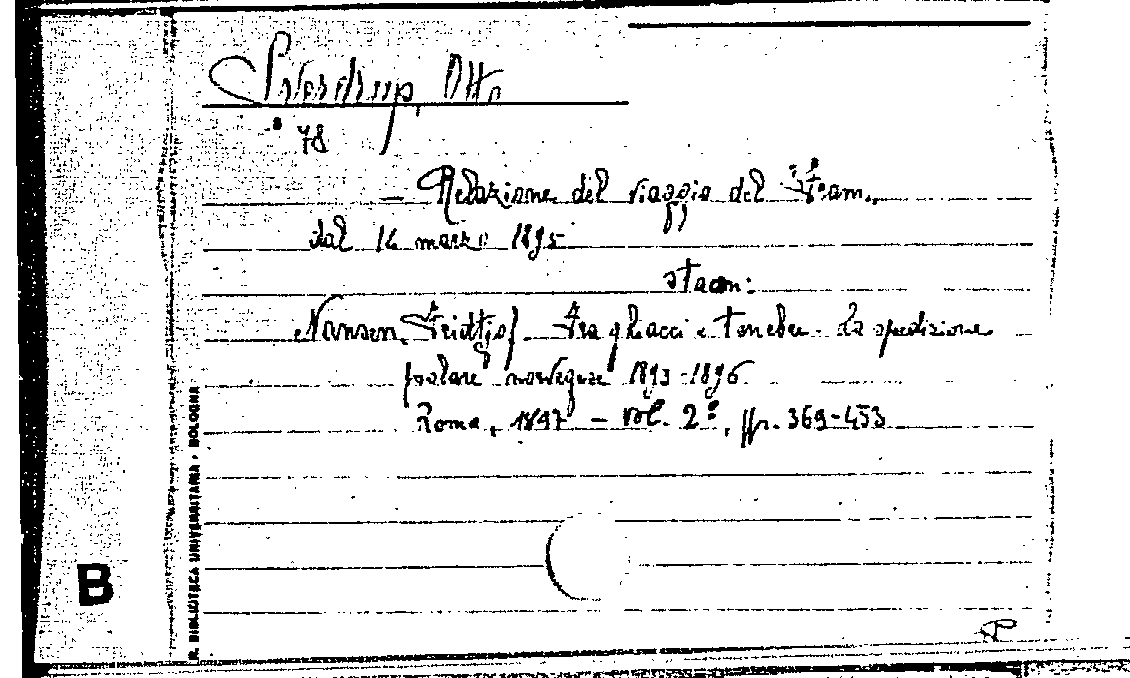 Sverdrup, Otto
78
— Relazione del viaggio del "Fram"
dal 14 marzo 1895
sta con:
Nansen, Fridtjof - Fra ghiacci e tenebre. La spedizione
polare norvegese 1893-1896
Roma, 1897 - vol. 2º, pp. 369-453
R. BIBLIOTECA UNIVERSITARIA - BOLOGNA
B